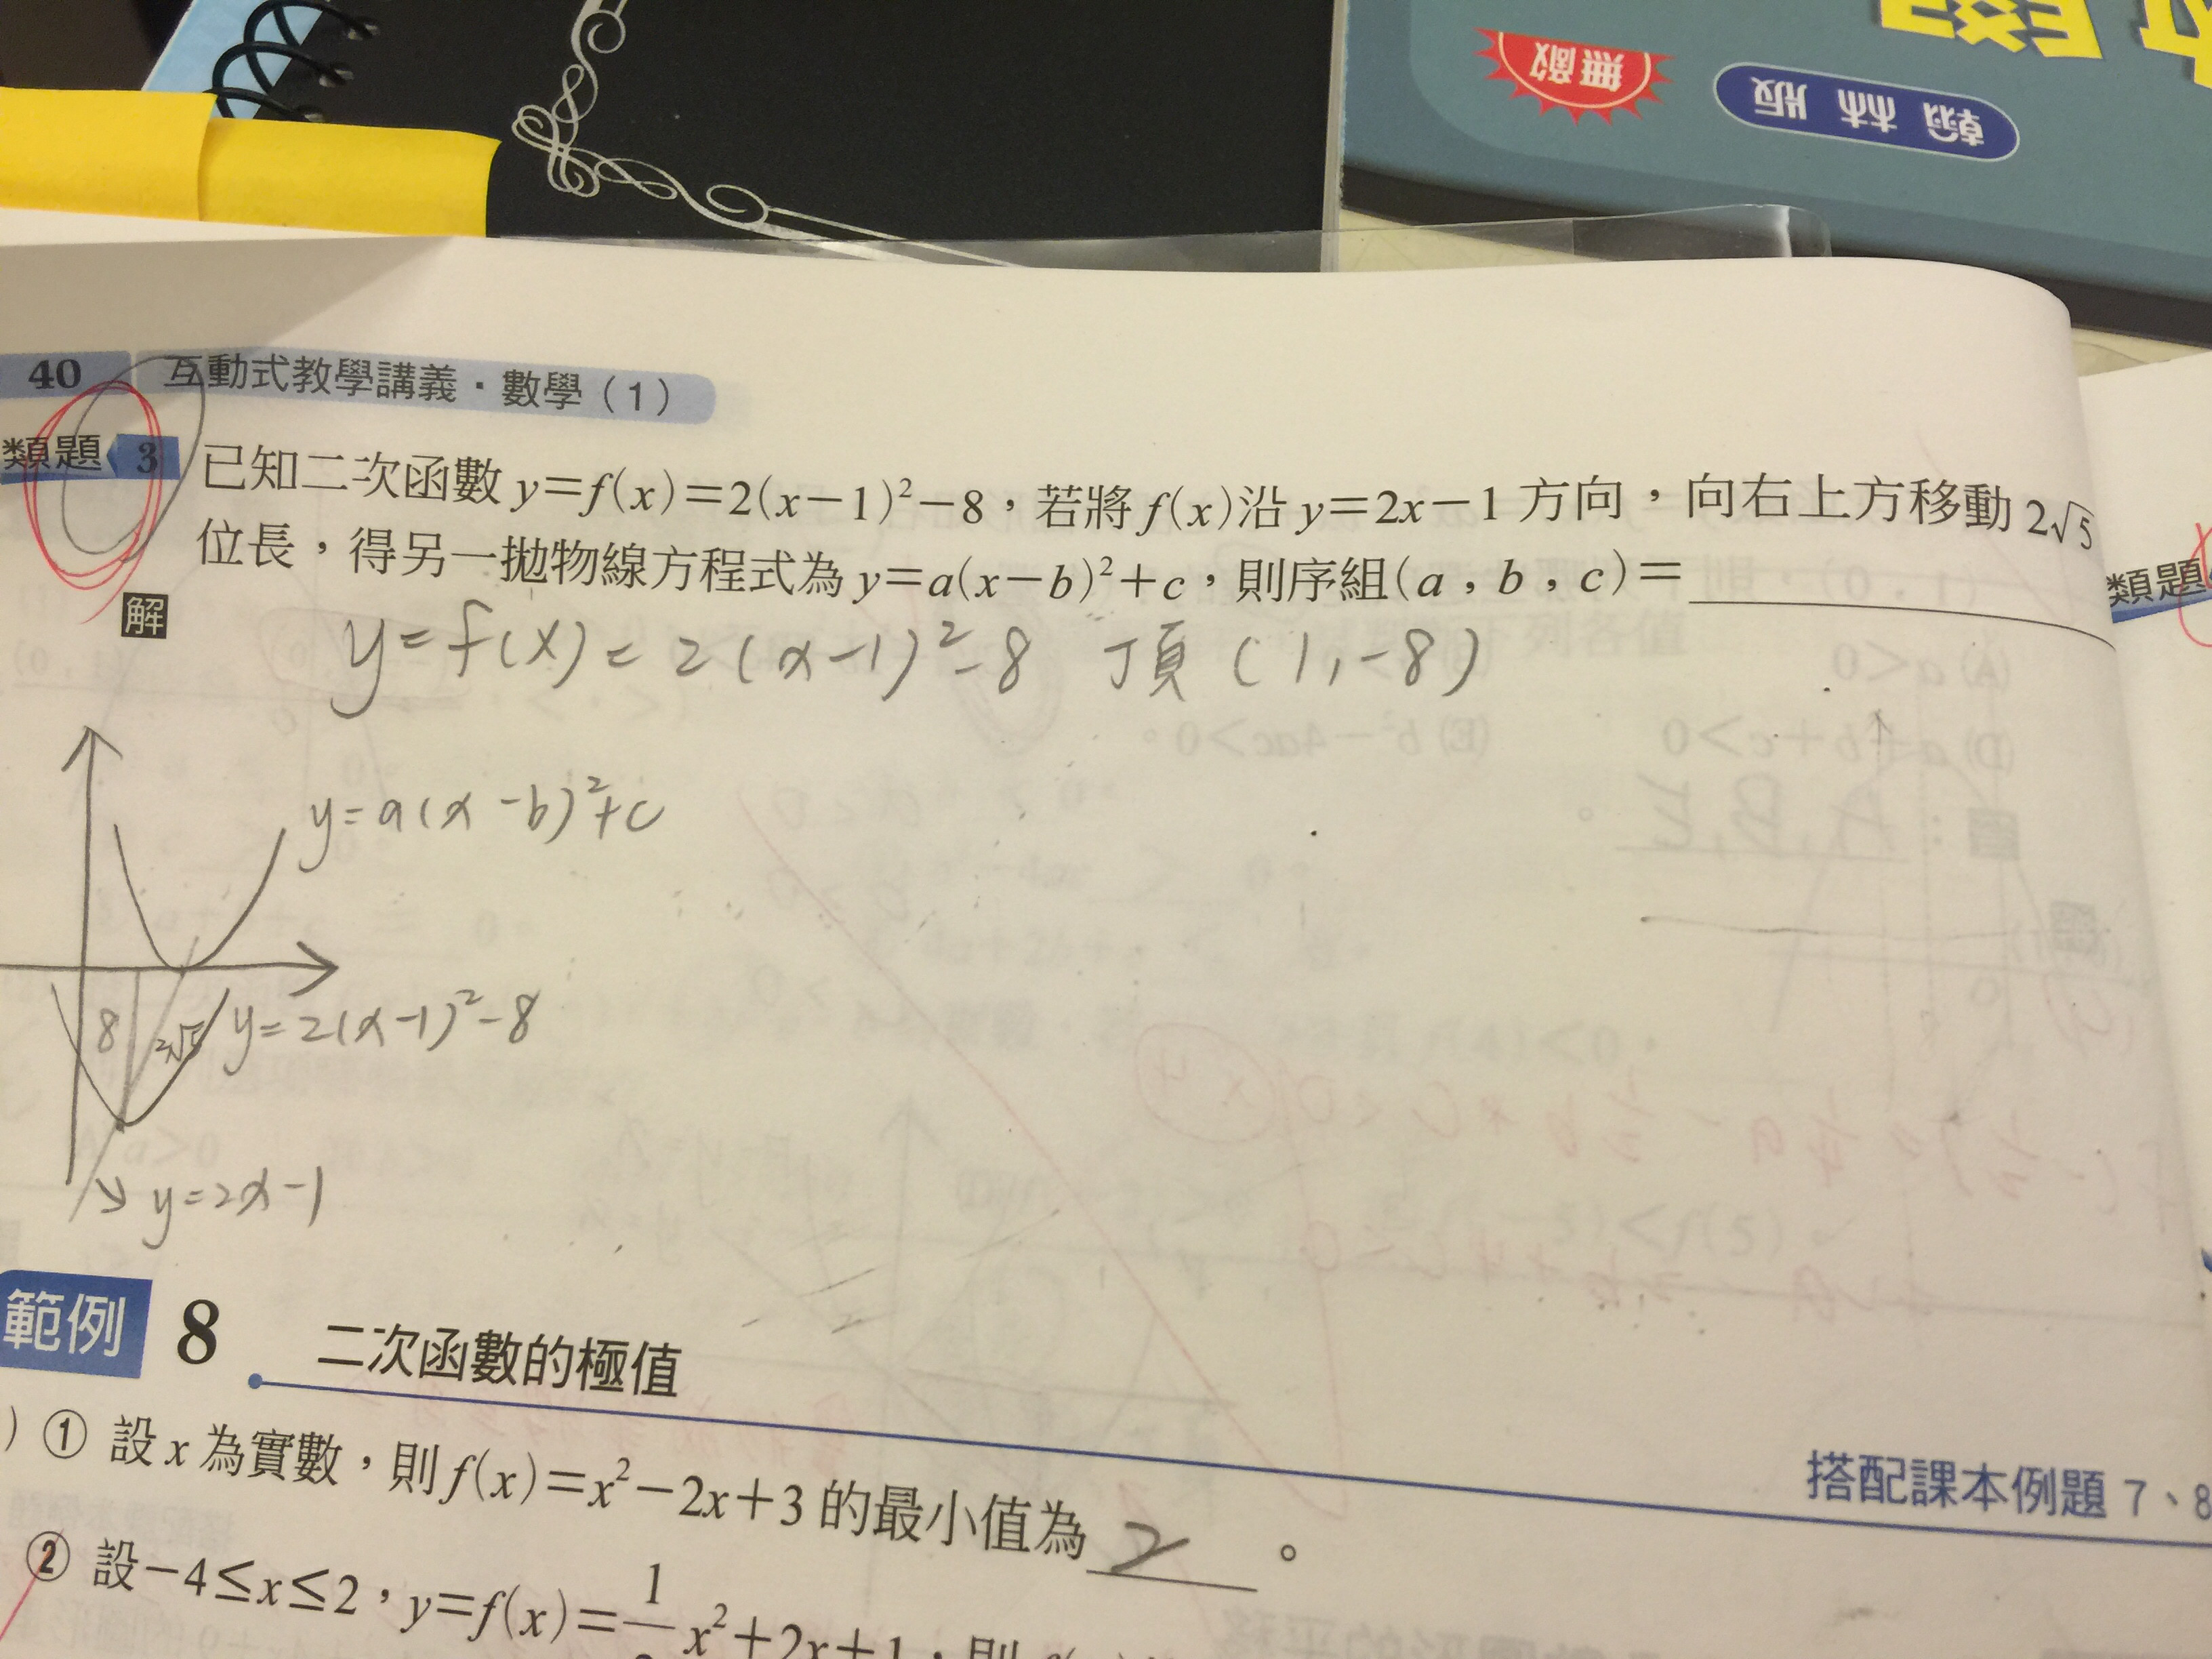 無敵
翰林版
40 互動式教學講義・數學（1）
類題 3 已知二次函數 y=f(x)=2(x-1)²-8，若將 f(x) 沿 y=2x-1 方向，向右上方移動 2√5
位長，得另一拋物線方程式為 y=a(x-b)²+c，則序組(a，b，c)=
類題
解
y=f(x)=2(x-1)²-8 頂(1,-8)
y=a(x-b)²+c
8
2√5
y=2(x-1)²-8
y=2x-1
範例 8 二次函數的極值
搭配課本例題 7、8
) ① 設 x 為實數，則 f(x)=x²-2x+3 的最小值為 2 。
② 設-4≤x≤2，y=f(x)= 1 x²+2x+1，則